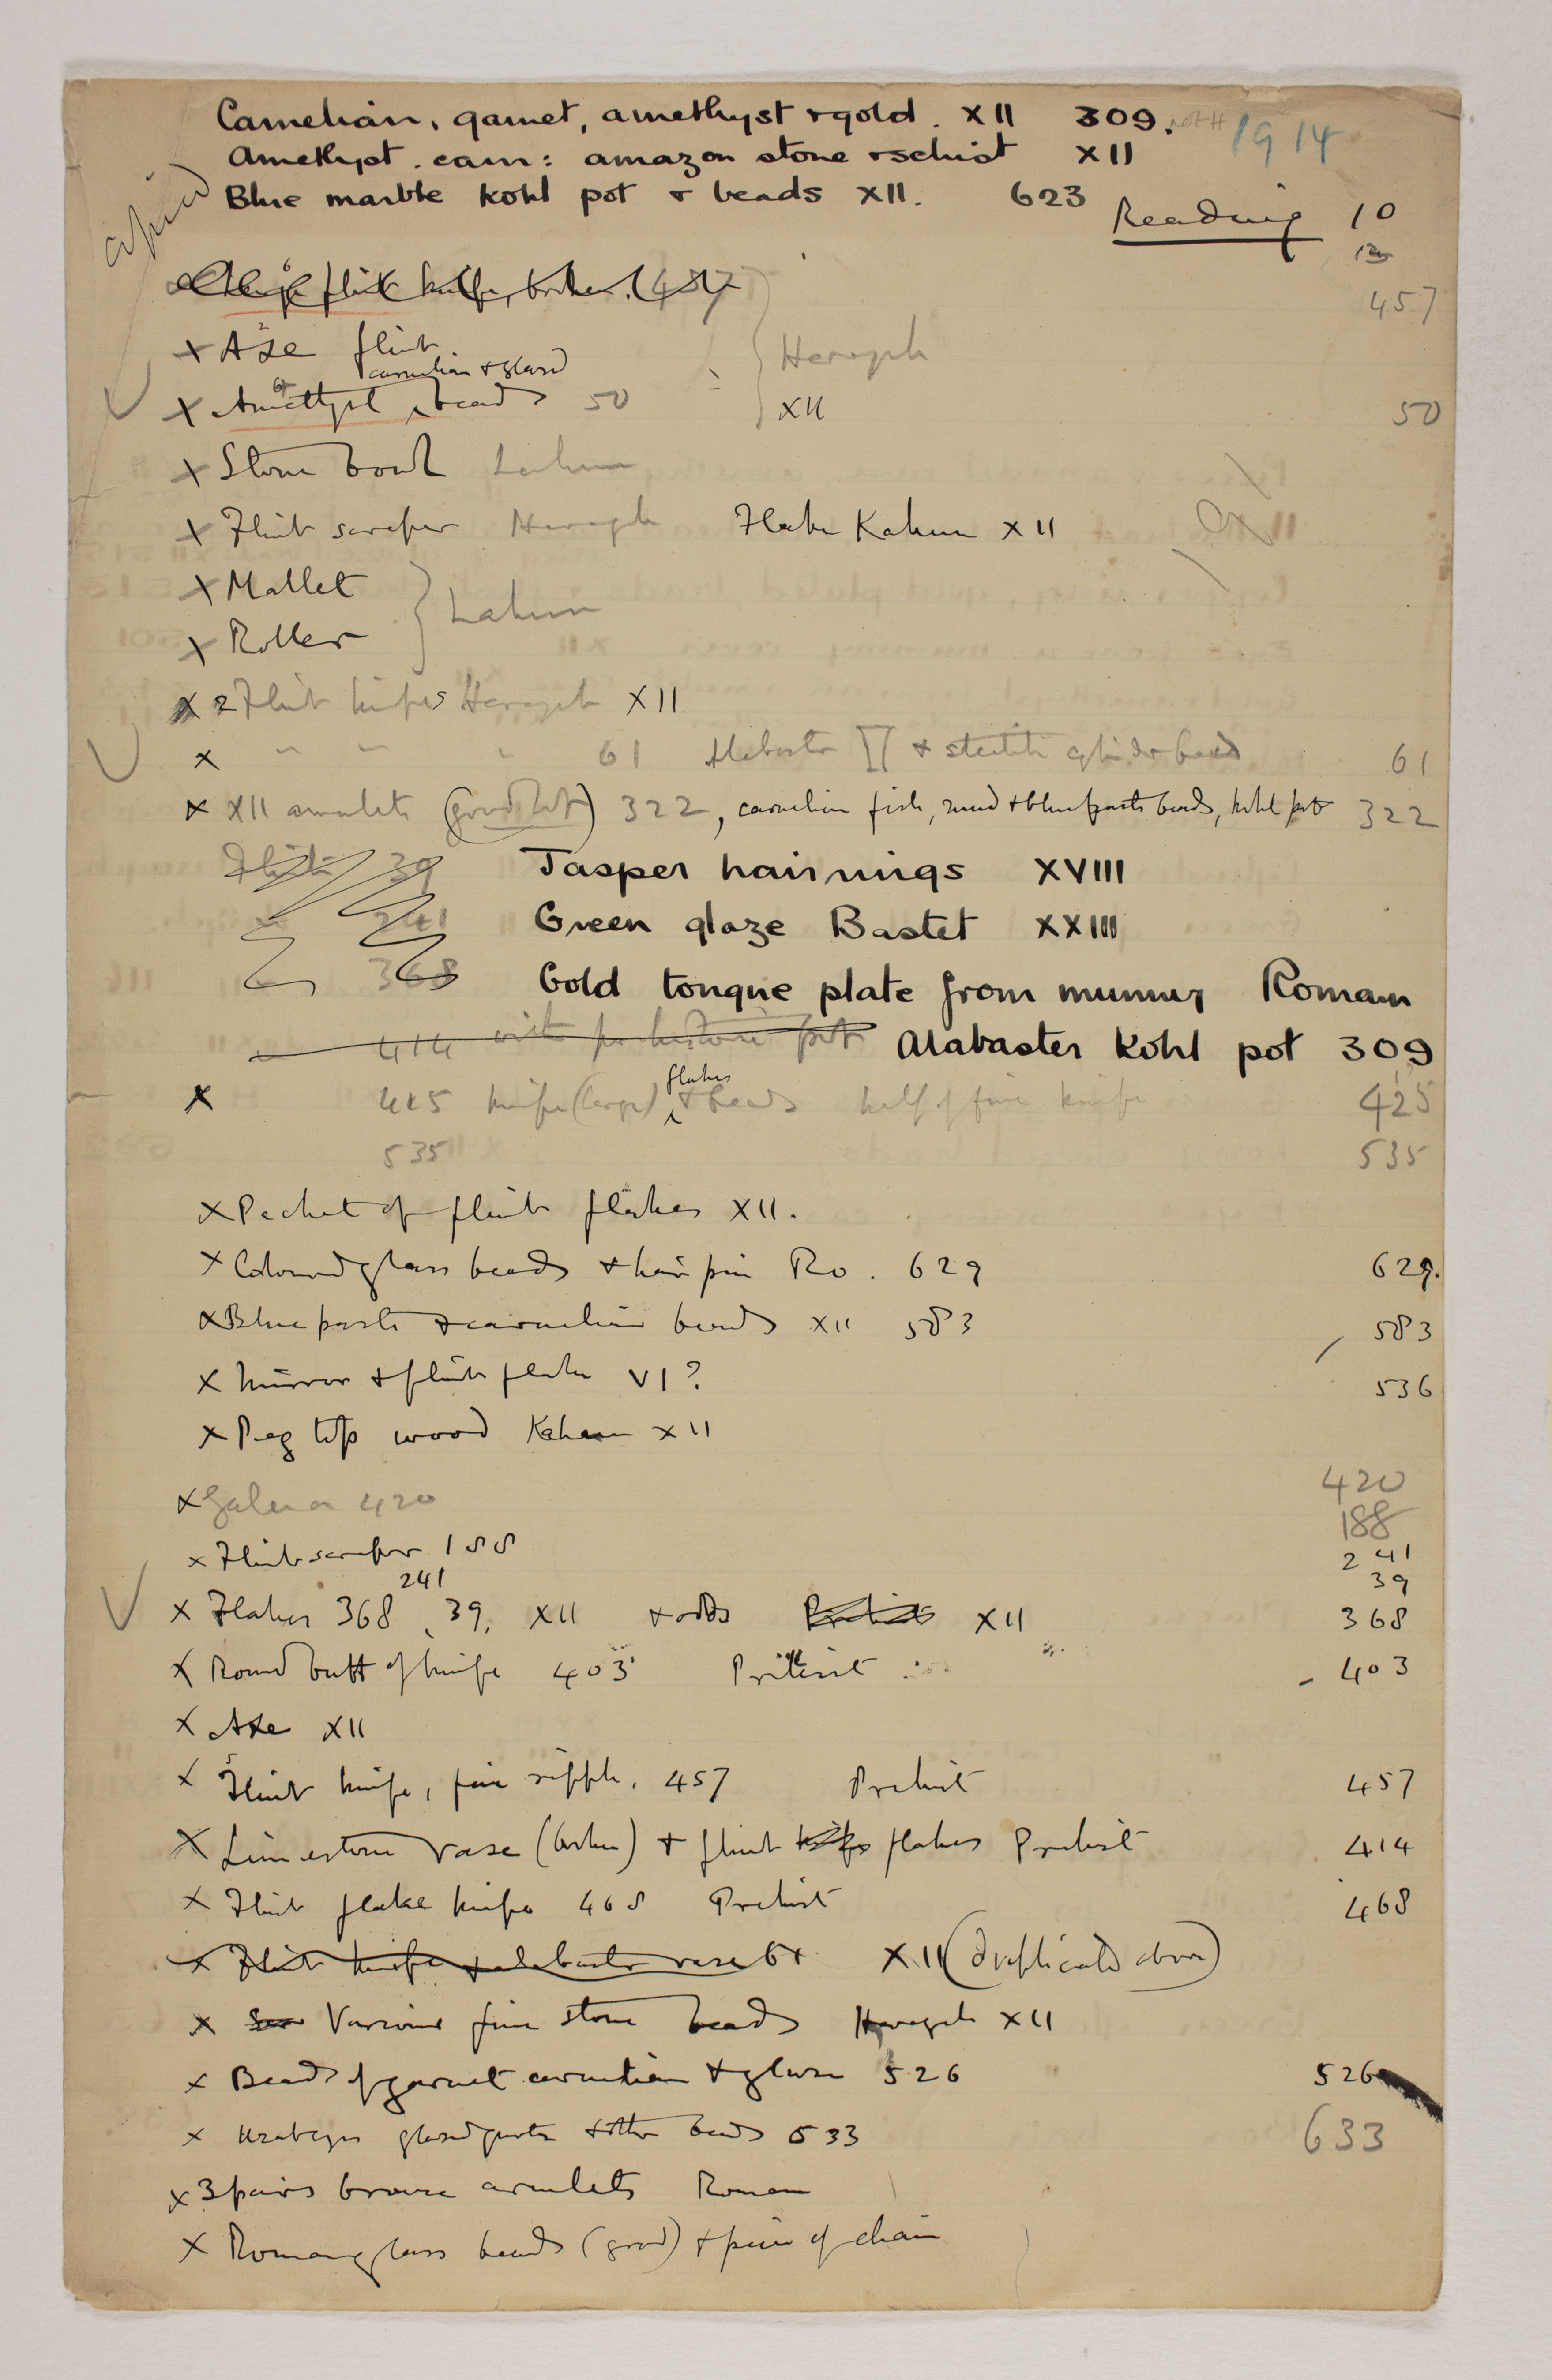 Carnelian, garnet, amethyst & gold. XII 309. 1914
Amethyst. carn: amazon stone & schist XII
Blue marble kohl pot & beads XII. 623
Reading 10
copied
flint knife, broken. 457
457
X Axe flint
Harageh
carnelian & glazed
X Amethyst beads 50 XII 50
X Stone bowl Lahun
X Flint scraper Harageh Flake Kahun XII
X Mallet
X Roller } Lahun
X 2 Flint knifes Harageh XII
X " " " 61 Alabaster & steatite cylinder bead 61
X XII amulets (good lot) 322, carnelian fish, mud & blue paste beads, kohl pot 322
Flints 39 Jasper hairrings XVIII
241 Green glaze Bastet XXIII
368 Gold tongue plate from mummy Roman
414 with prehistoric pot Alabaster Kohl pot 309
flakes
X 425 knife (large) & beads half of fine knife 425
535 535
X Packet of flint flakes XII.
X Coloured glass beads & hair pin Ro. 629 629.
X Blue paste & carnelian beads XII 583 583
X Mirror & flint flake VI? 536
X Peg top wood Kahun XII
X Galena 420 420
188
X Flint scraper 188 241
241 39
X Flakes 368, 39, XII & odds Prehist XII 368
X Round butt of knife 403 Prehist 403
X Axe XII
X Flint knife, fine ripple, 457 Prehist 457
X Limestone vase (broken) & flint knife flakes Prehist 414
X Flint flake knife 468 Prehist 468
X Flint knife & alabaster vase 61 XII (duplicated above)
X Various fine stone beads Harageh XII
X Beads of garnet carnelian & glaze 526 526
X Uzateyes glazed quartz & other beads 633 633
X 3 pairs bronze armlets Roman
X Roman glass beads (good) & piece of chain